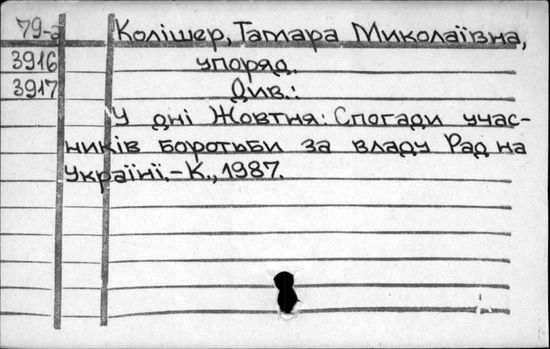 79-а Колішер, Тамара Миколаївна,
3916 упоряд.
3917 Див.:
У дні Жовтня: Спогади учас-
ників боротьби за владу Рад на
Україні.-К., 1987.